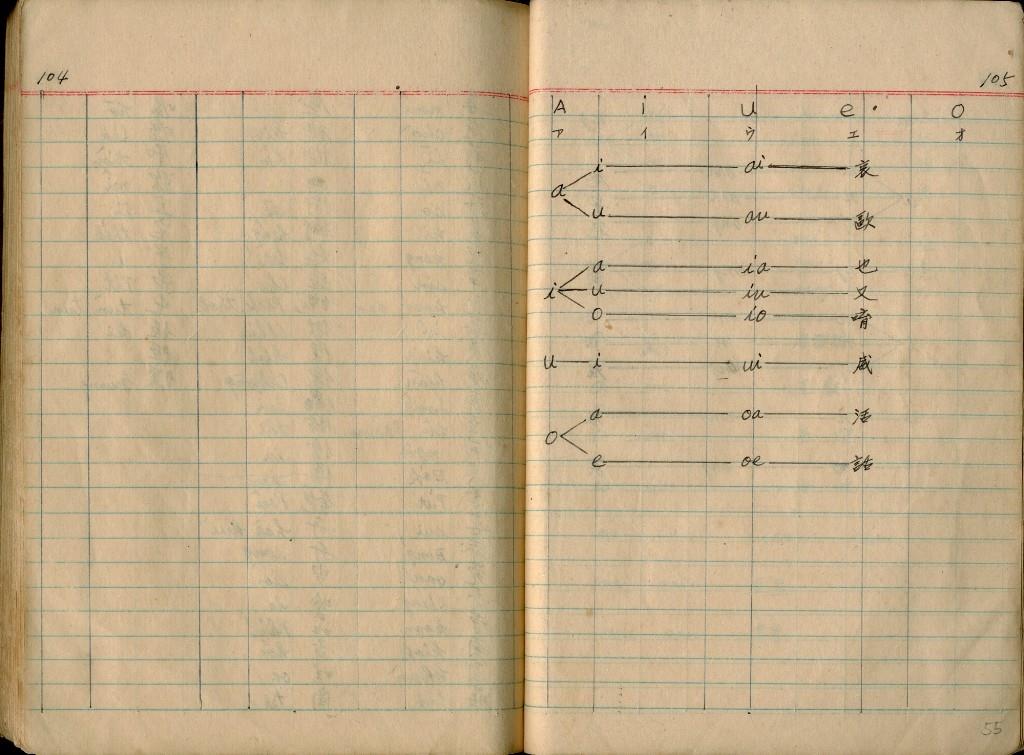 104
105
A i u e o
ア イ ウ エ オ
a i ai 哀
u au 歐
i a ia 也
u iu 又
o io 唷
u i ui 威
o a oa 活
e oe 話
55